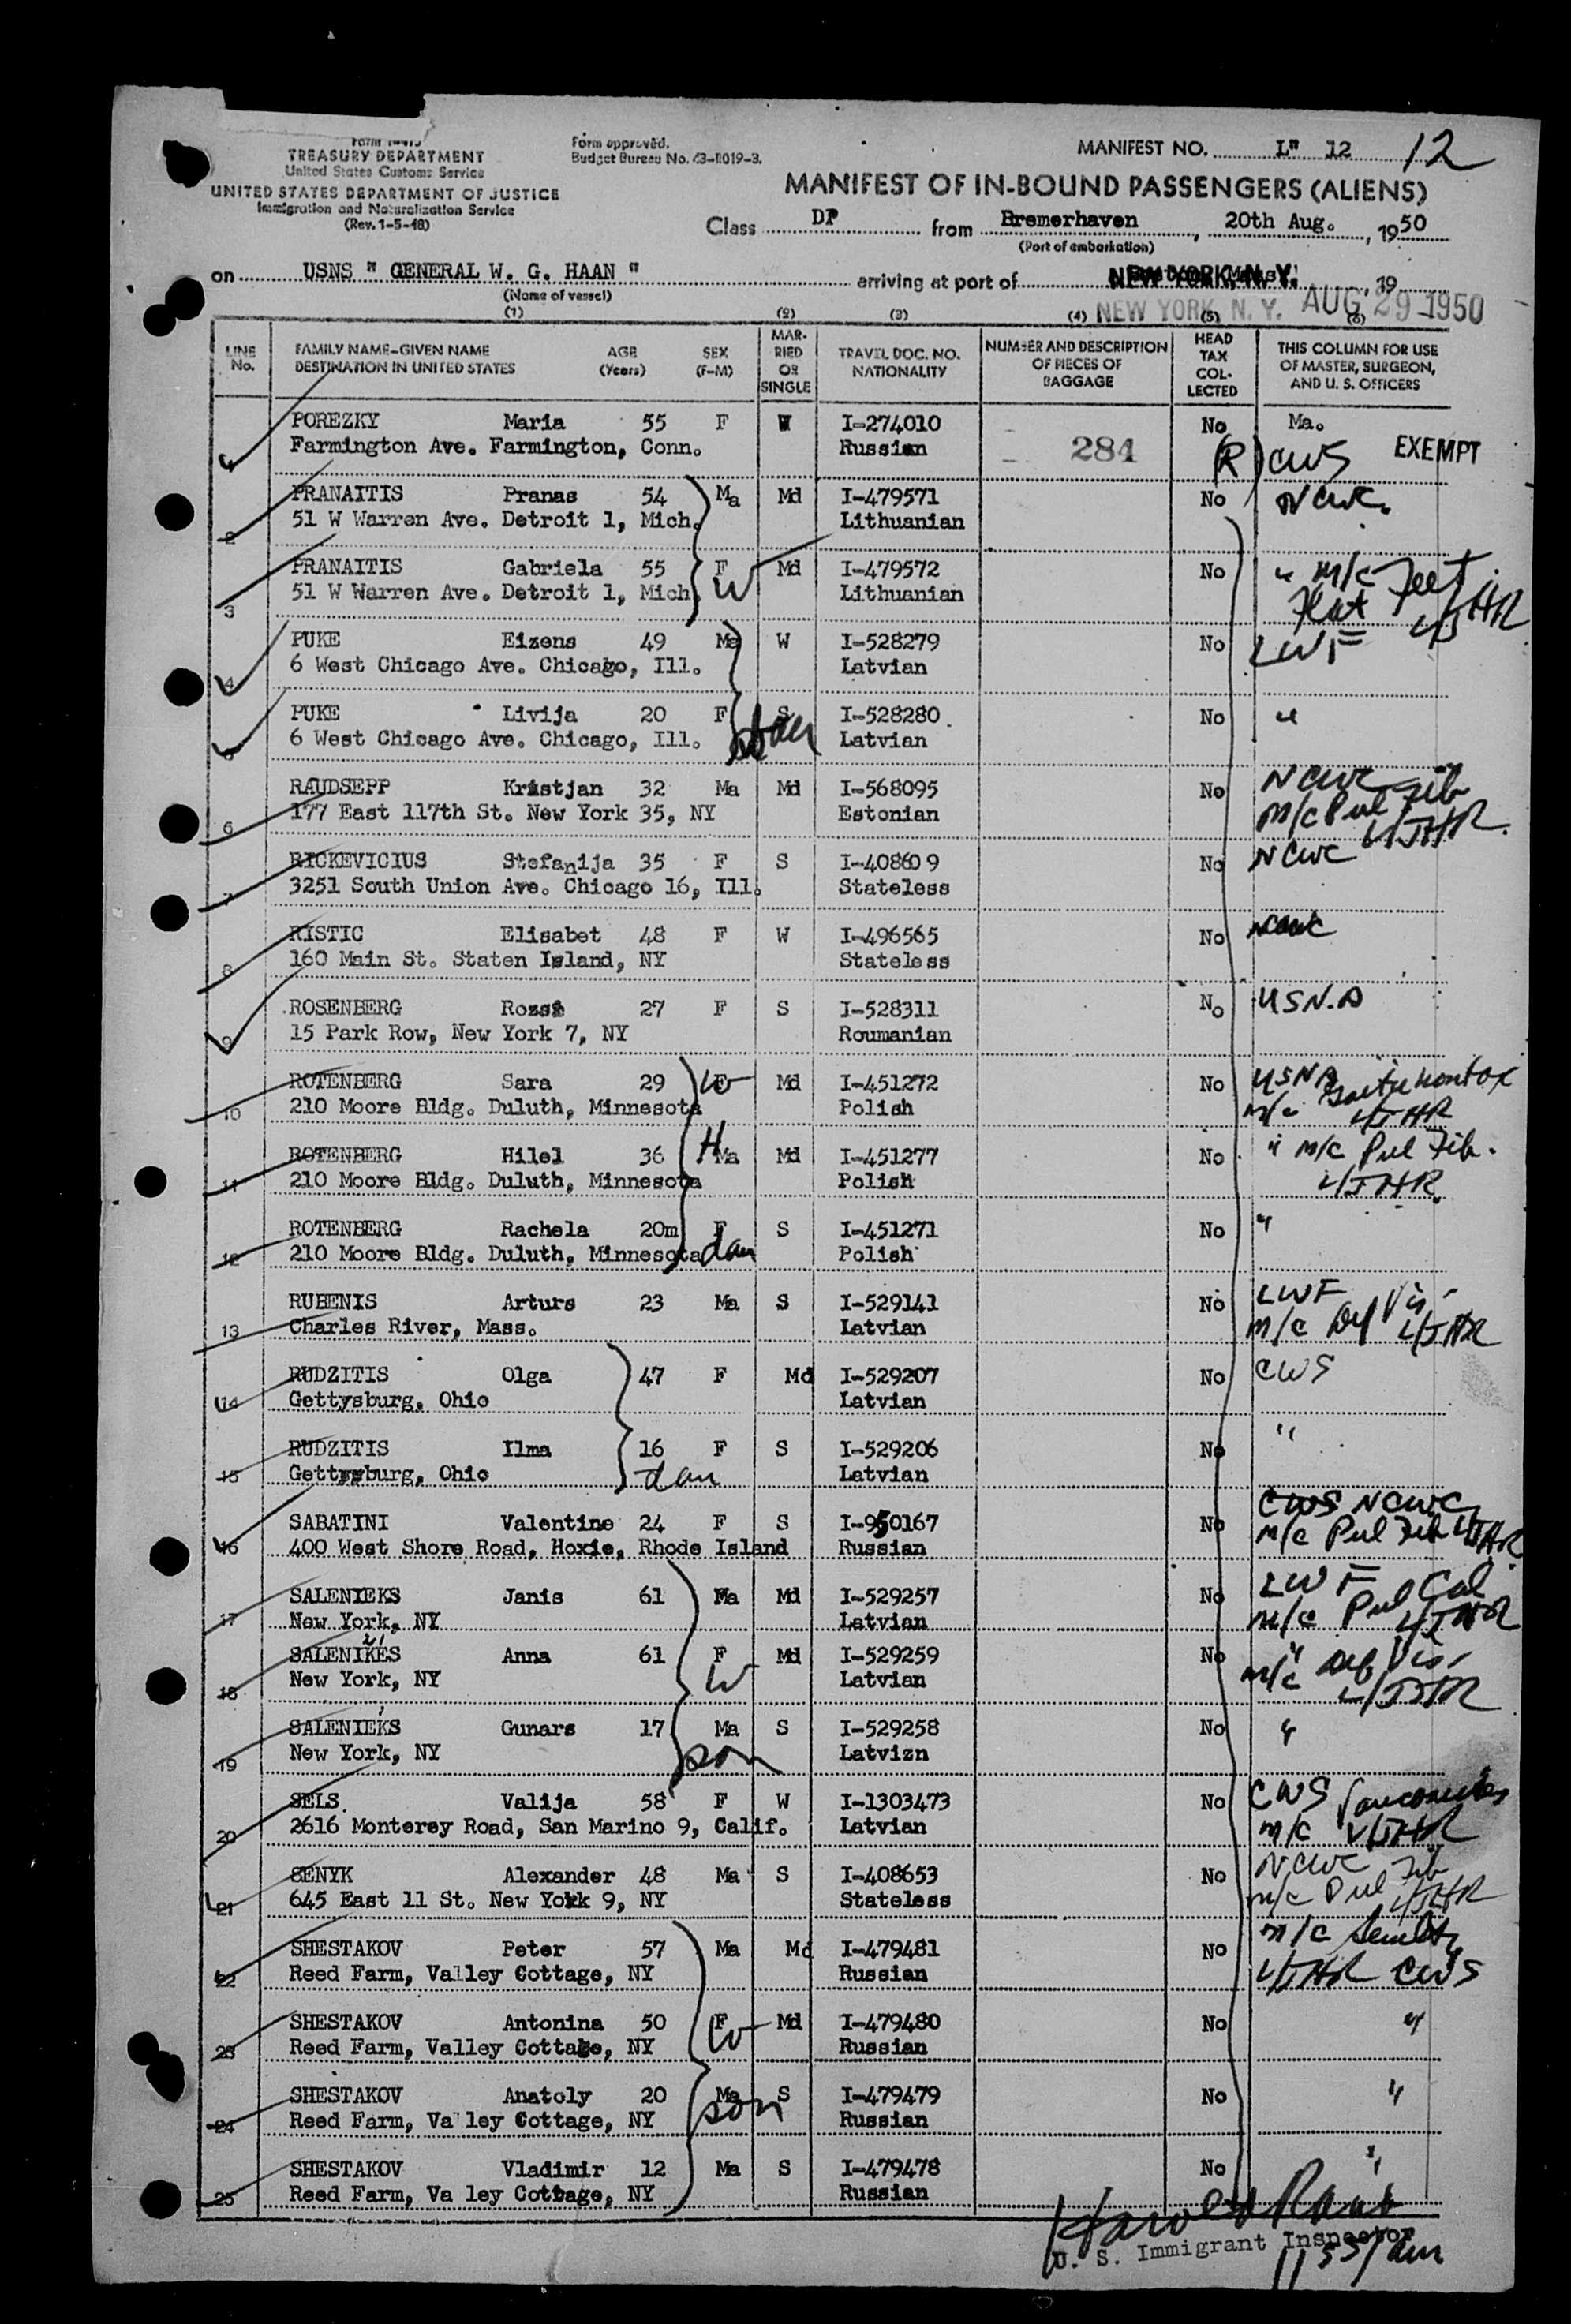 Form I-415
TREASURY DEPARTMENT
United States Customs Service
UNITED STATES DEPARTMENT OF JUSTICE
Immigration and Naturalization Service
(Rev. 1-5-48)
Form approved.
Budget Bureau No. 43-R019-3.
MANIFEST NO. L" 12 12
MANIFEST OF IN-BOUND PASSENGERS (ALIENS)
Class DP from Bremerhaven, 20th Aug., 1950
(Port of embarkation)
on USNS " GENERAL W. G. HAAN " arriving at port of NEW YORK, N. Y., 19
(Name of vessel)
NEW YORK, N. Y. AUG 29 1950
(1) (2) (3) (4) (5) (6)
LINE No. FAMILY NAME-GIVEN NAME DESTINATION IN UNITED STATES AGE (Years) SEX (F-M) MARRIED OR SINGLE TRAVEL DOC. NO. NATIONALITY NUMBER AND DESCRIPTION OF PIECES OF BAGGAGE HEAD TAX COLLECTED THIS COLUMN FOR USE OF MASTER, SURGEON, AND U. S. OFFICERS
1 POREZKY Maria 55 F W I-274010 No Ma.
Farmington Ave. Farmington, Conn. Russian 284 (R) CWS EXEMPT
2 PRANAITIS Pranas 54 Ma Md I-479571 No NCWC.
51 W Warren Ave. Detroit 1, Mich. Lithuanian
3 PRANAITIS Gabriela 55 F W Md I-479572 No " m/c Flat Feet
51 W Warren Ave. Detroit 1, Mich. Lithuanian L/JHR
4 PUKE Eizens 49 Ma W I-528279 No LWF
6 West Chicago Ave. Chicago, Ill. Latvian
5 PUKE Livija 20 F S I-528280 No "
6 West Chicago Ave. Chicago, Ill. dau Latvian
6 RAUDSEPP Kristjan 32 Ma Md I-568095 No NCWC
177 East 117th St. New York 35, NY Estonian m/c Pul Fib L/JHR
7 RICKEVICIUS Stefanija 35 F S I-408609 No NCWC
3251 South Union Ave. Chicago 16, Ill. Stateless
8 RISTIC Elisabet 48 F W I-496565 No NCWC
160 Main St. Staten Island, NY Stateless
9 ROSENBERG Rozsi 27 F S I-528311 No USN.A
15 Park Row, New York 7, NY Roumanian
10 ROTENBERG Sara 29 F W Md I-451272 No USNA
210 Moore Bldg. Duluth, Minnesota Polish m/c Goitre nontox L/JHR
11 ROTENBERG Hilel 36 H Ma Md I-451277 No " m/c Pul Fib.
210 Moore Bldg. Duluth, Minnesota Polish L/JHR
12 ROTENBERG Rachela 20m F S I-451271 No "
210 Moore Bldg. Duluth, Minnesota dau Polish
13 RUBENIS Arturs 23 Ma S I-529141 No LWF
Charles River, Mass. Latvian m/c Def Vis. L/JHR
14 RUDZITIS Olga 47 F Md I-529207 No CWS
Gettysburg, Ohio Latvian
15 RUDZITIS Ilma 16 F S I-529206 No "
Gettysburg, Ohio dau Latvian
16 SABATINI Valentine 24 F S I-950167 No CWS NCWC
400 West Shore Road, Hoxie, Rhode Island Russian m/c Pul Fib L/JHR
17 SALENIEKS Janis 61 Ma Md I-529257 No LWF
New York, NY Latvian m/c Pul Cal L/JHR
18 SALENIKES Anna 61 F W Md I-529259 No "
New York, NY Latvian m/c Def Vis. L/JHR
19 SALENIEKS Gunars 17 Ma S I-529258 No "
New York, NY son Latvizn
20 SELS Valija 58 F W I-1303473 No CWS
2616 Monterey Road, San Marino 9, Calif. Latvian m/c L/JHR
21 SENYK Alexander 48 Ma S I-408653 No NCWC
645 East 11 St. New Yokk 9, NY Stateless m/c Pul Fib L/JHR
22 SHESTAKOV Peter 57 Ma Md I-479481 No m/c Senility
Reed Farm, Valley Cottage, NY Russian L/JHR CWS
23 SHESTAKOV Antonina 50 F W Md I-479480 No "
Reed Farm, Valley Cottage, NY Russian
24 SHESTAKOV Anatoly 20 Ma S I-479479 No "
Reed Farm, Va ley Cottage, NY son Russian
25 SHESTAKOV Vladimir 12 Ma S I-479478 No "
Reed Farm, Va ley Cottage, NY Russian
U. S. Immigrant Inspector